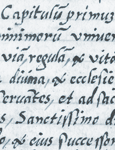 Capitulũ primuz
nimirerũ uniuer
uiã, regulã, & vitã
diuina, & ecclesie
seruates, et ad sac
s, Sanctissimo d
o, & eius successor